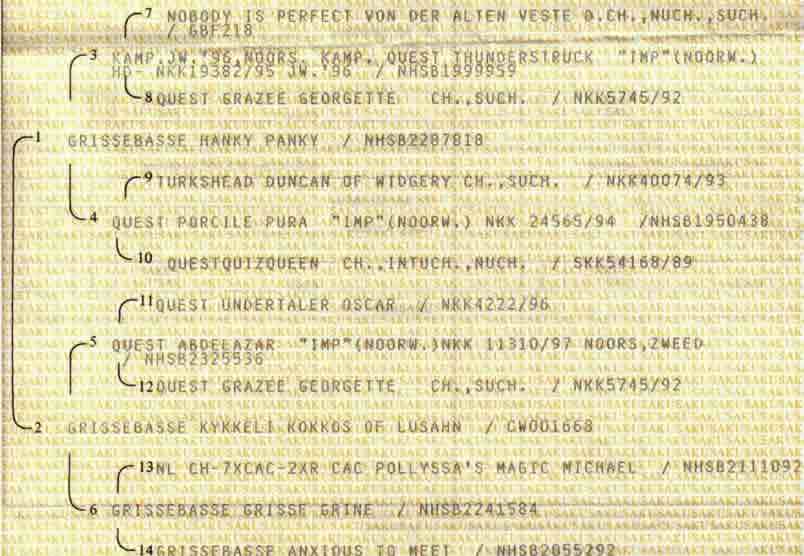 7 NOBODY IS PERFECT VON DER ALTEN VESTE D.CH.,NUCH.,SUCH.
/ GBF218
3 KAMP.JW.'96,NOORS. KAMP. QUEST THUNDERSTRUCK "IMP"(NOORW.)
HD- NKK19382/95 JW.'96 / NHSB1999959
8 QUEST GRAZEE GEORGETTE CH.,SUCH. / NKK5745/92
1 GRISSEBASSE HANKY PANKY / NHSB2287818
9 TURKSHEAD DUNCAN OF WIDGERY CH.,SUCH. / NKK40074/93
4 QUEST PORCILE PURA "IMP"(NOORW.) NKK 24565/94 /NHSB1950438
10 QUESTQUIZQUEEN CH.,INTUCH.,NUCH. / SKK54168/89
11 QUEST UNDERTALER OSCAR / NKK4222/96
5 QUEST ABDELAZAR "IMP"(NOORW.)NKK 11310/97 NOORS,ZWEED
/ NHSB2325536
12 QUEST GRAZEE GEORGETTE CH.,SUCH. / NKK5745/92
2 GRISSEBASSE KYKKELI KOKKOS OF LUSAHN / CW001668
13 NL CH-7XCAC-2XR CAC POLLYSSA'S MAGIC MICHAEL / NHSB2111092
6 GRISSEBASSE GRISSE GRINE / NHSB2241584
14 GRISSEBASSE ANXIOUS TO MEET / NHSB2055292